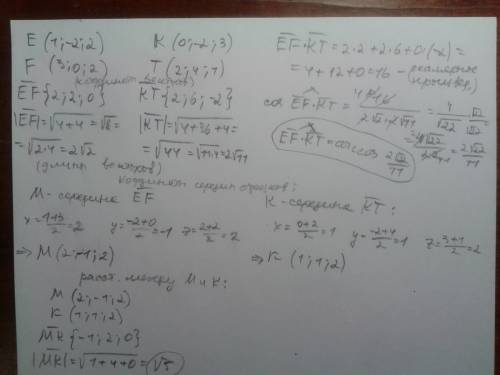 E (1;-2;2) K (0;-2;3)
F (3;0;2) T (2;4;1)
координаты векторов)
EF{2;2;0} KT{2;6;-2}
|EF|=√4+4=√8= |KT|=√4+36+4=
=√2·4=2√2 =√44=√11·4=2√11
(длины векторов)
EF·KT=2·2+2·6+0·(-2)=
=4+12+0=16 - скалярное
cos EF·KT=
EF·KT=arccos 2√22/11
координаты середин отрезков:
M - середина EF K - середина KT:
x=1+3/2=2 y=-2+0/2=-1 z=2+2/2=2 x=0+2/2=1 y=-2+4/2=1 z=3+1/2=2
=> M(2;-1;2) => K (1;1;2)
расст. между M и K:
M (2;-1;2)
K (1;1;2)
MK{-1;2;0}
|MK|=√1+4+0=√5